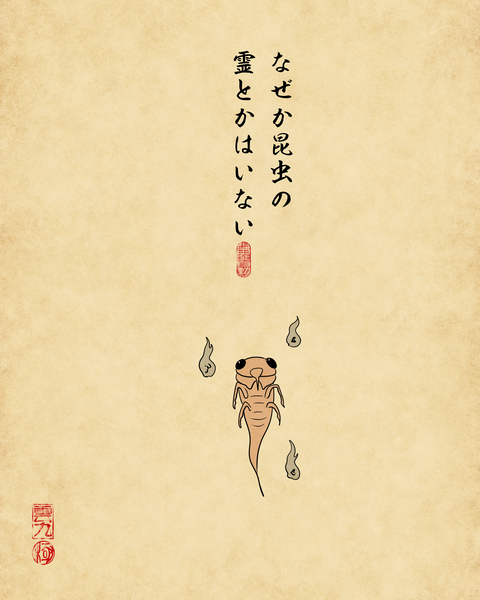 なぜか昆虫の
霊とかはいない